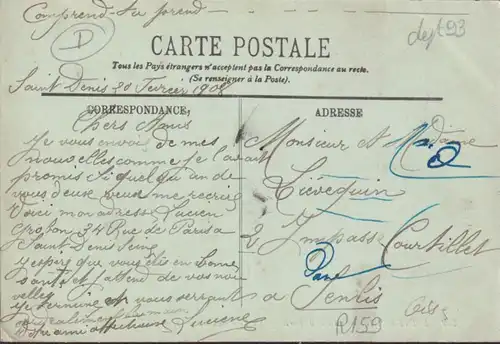 Comprend-tu prend
D
dept 93
CARTE POSTALE
Tous les Pays étrangers n'acceptent pas la Correspondance au recto.
(Se renseigner à la Poste.)
Saint Denis 20 Fevrer 1908
CORRESPONDANCE
Chers Amis
Je vous envoi de mes
nouvelles comme je l'avait
promis si quelqu'un de
vous deux veux me
Voici mon adresse Lucien
34 Rue de Paris
Saint Denis Seine
J'espère que vous êtes en bonne
santé et j'attend de vos nou
velles
Je termine en vous serrant
la main
Lucien
ADRESSE
Monsieur et Madame
Lievequin
2 Impasse Courtillet
a Senlis
Oise
R159